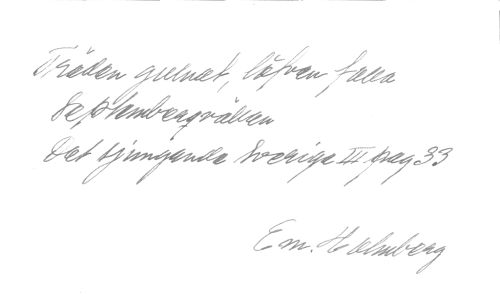 Träden gulnat, löfven falla
Septemberqvällen
Det sjungande Sverige III pag 33
Em. Holmberg